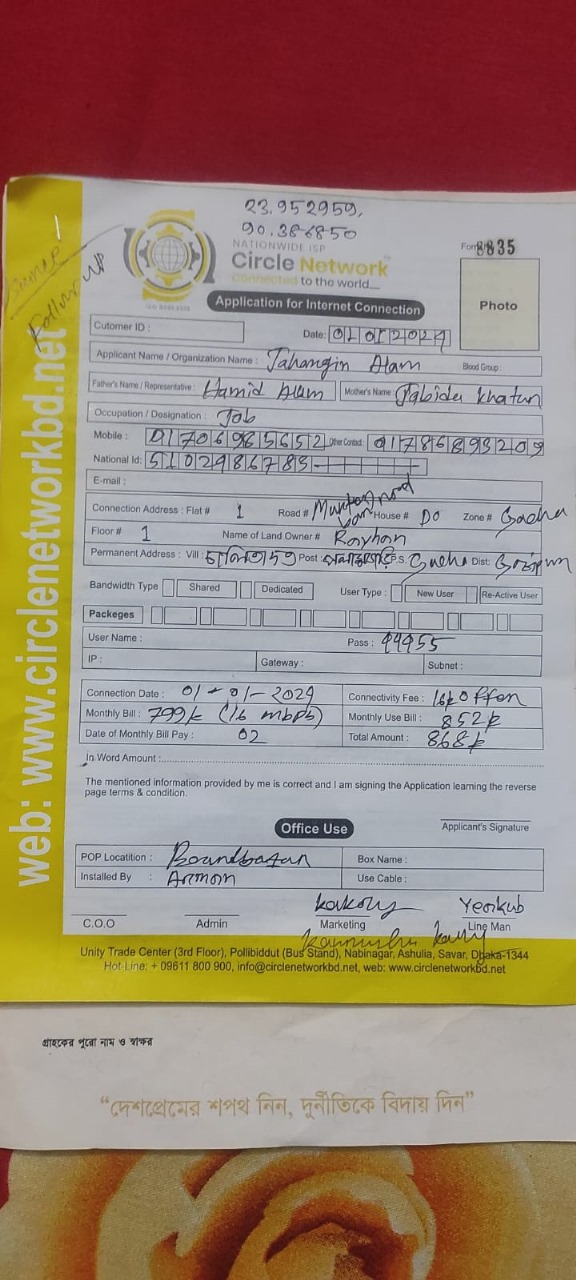 23.952959,
90.386850
NATIONWIDE ISP
Circle Network
Connected to the world....
Form 8835
Photo
Application for Internet Connection
Cutomer ID :
Date: 01 01 2024
Applicant Name / Organization Name : Jahangin Alam Blood Group :
Father's Name / Representative : Hamid Alam Mother's Name Jabida khatun
Occupation / Designation : Job
Mobile : 01706965652 Other Contact : 01786893209
National Id: 5102986785
E-mail :
Connection Address : Flat # 1 Road # House # DO Zone # Gacha
Floor # 1 Name of Land Owner # Rayhan
Permanent Address : Vill : Post : P.S. Gacha Dist: Gazipun
Bandwidth Type Shared Dedicated User Type : New User Re-Active User
Packeges
User Name : Pass : 99955
IP : Gateway : Subnet :
Connection Date : 01-01-2024 Connectivity Fee : offen
Monthly Bill : 799/= (16 mbps) Monthly Use Bill : 852/=
Date of Monthly Bill Pay : 02 Total Amount : 868/=
In Word Amount :
The mentioned information provided by me is correct and I am signing the Application learning the reverse
page terms & condition.
Office Use
Applicant's Signature
POP Locatition : Boundbazan Box Name :
Installed By : Armon Use Cable :
kakoly Yeakub
C.O.O Admin Marketing Line Man
Unity Trade Center (3rd Floor), Pollibiddut (Bus Stand), Nabinagar, Ashulia, Savar, Dhaka-1344
Hot-Line: + 09611 800 900, info@circlenetworkbd.net, web: www.circlenetworkbd.net
web: www.circlenetworkbd.net
Follow up
গ্রাহকের পুরো নাম ও স্বাক্ষর
“দেশপ্রেমের শপথ নিন, দুর্নীতিকে বিদায় দিন”